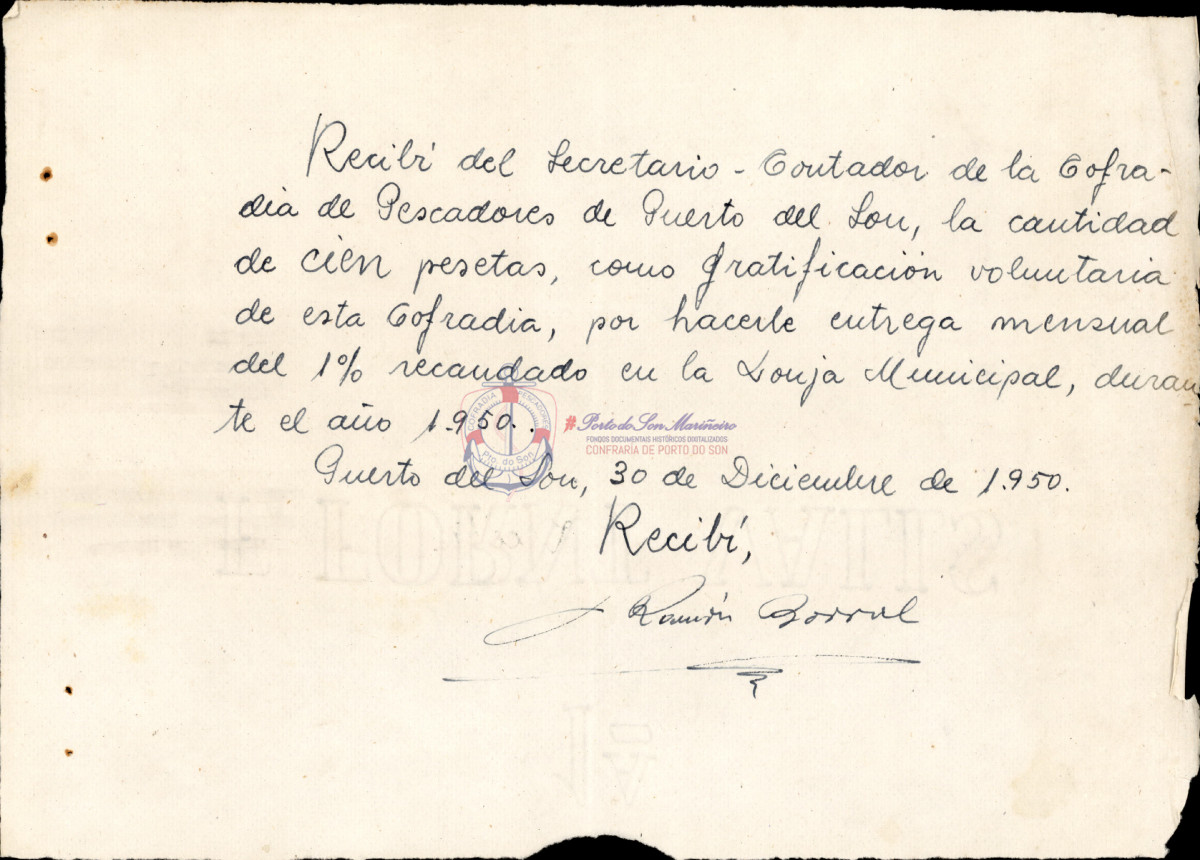 Recibí del Secretario - Contador de la Cofra-
dia de Pescadores de Puerto del Son, la cantidad
de cien pesetas, como gratificación voluntaria
de esta Cofradia, por hacerle entrega mensual
del 1% recaudado en la Lonja Municipal, duran
te el año 1.950..
COFRADIA PESCADORES
Pto. do Son
#Porto do Son Mariñeiro
FONDOS DOCUMENTAIS HISTÓRICOS DIXITALIZADOS
CONFRARÍA DE PORTO DO SON
Puerto del Son, 30 de Diciembre de 1.950.
Recibí,
Ramón Borral